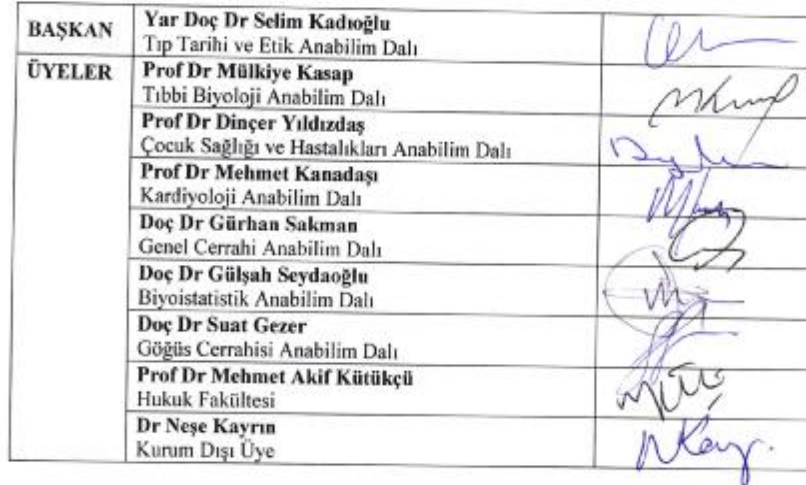 BAŞKAN
Yar Doç Dr Selim Kadıoğlu
Tıp Tarihi ve Etik Anabilim Dalı
ÜYELER
Prof Dr Mülkiye Kasap
Tıbbi Biyoloji Anabilim Dalı
Prof Dr Dinçer Yıldızdaş
Çocuk Sağlığı ve Hastalıkları Anabilim Dalı
Prof Dr Mehmet Kanadaşı
Kardiyoloji Anabilim Dalı
Doç Dr Gürhan Sakman
Genel Cerrahi Anabilim Dalı
Doç Dr Gülşah Seydaoğlu
Biyoistatistik Anabilim Dalı
Doç Dr Suat Gezer
Göğüs Cerrahisi Anabilim Dalı
Prof Dr Mehmet Akif Kütükçü
Hukuk Fakültesi
Dr Neşe Kayrın
Kurum Dışı Üye